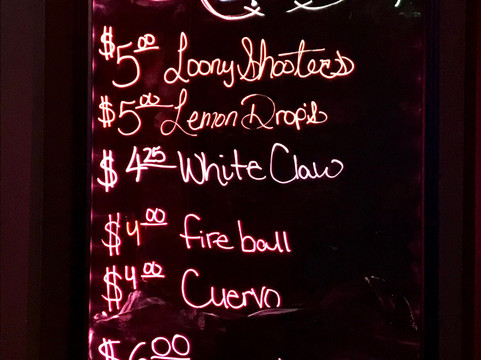 $5.00 Loony Shooters
$5.00 Lemon Drop's
$4.25 White Claw
$4.00 fireball
$4.00 Cuervo
$6.00